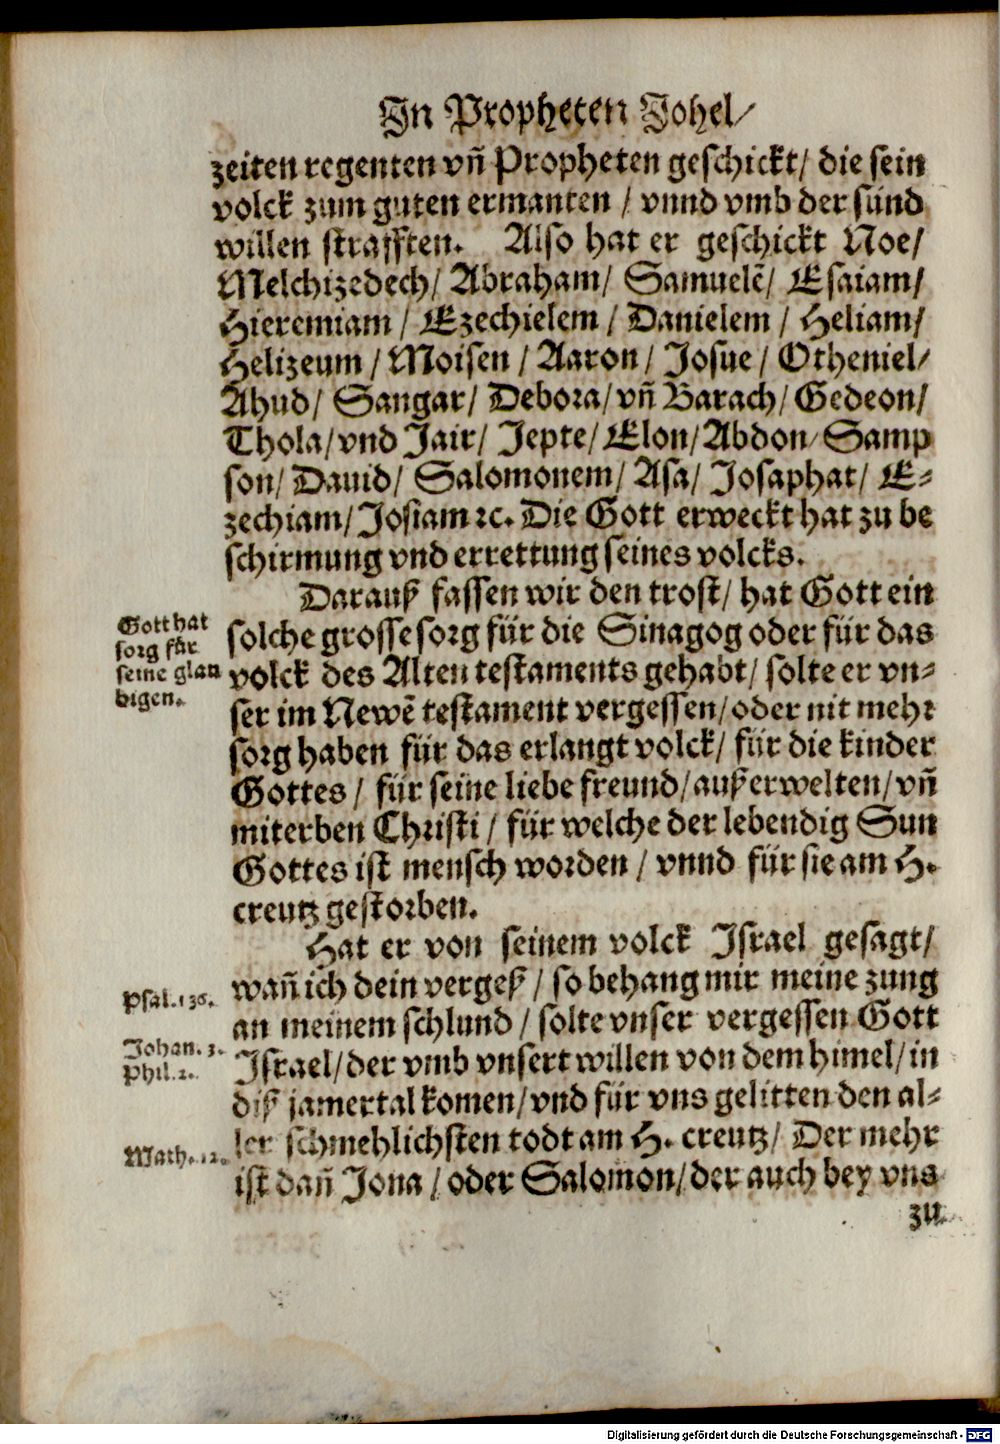 In Propheten Johel/
zeiten regenten vñ Propheten geschickt/ die sein
volck zum guten ermanten / vnnd vmb der sünd
willen strafften. Also hat er geschickt Noe/
Melchizedech/ Abraham/ Samuelẽ/ Esaiam/
Hieremiam / Ezechielem / Danielem / Heliam/
Helizeum / Moisen / Aaron / Josue / Otheniel/
Ahud/ Sangar/ Debora/ vñ Barach/ Gedeon/
Thola/ vnd Jair/ Jepte/ Elon/ Abdon/ Samp
son/ Dauid/ Salomonem/ Asa/ Josaphat/ E-
zechiam/ Josiam ꝛc. Die Gott erweckt hat zu be
schirmung vnd errettung seines volcks.
Darauß fassen wir den trost/ hat Gott ein
Gott hat
sorg für
seine glau
bigen.
solche grosse sorg für die Sinagog oder für das
volck des Alten testaments gehabt/ solte er vn-
ser im Newẽ testament vergessen/ oder nit mehr
sorg haben für das erlangt volck/ für die kinder
Gottes / für seine liebe freund/ außerwelten/ vñ
miterben Christi / für welche der lebendig Sun
Gottes ist mensch worden / vnnd für sie am H.
creutz gestorben.
Hat er von seinem volck Israel gesagt/
Psal.136.
wañ ich dein vergeß / so behang mir meine zung
an meinem schlund / solte vnser vergessen Gott
Johan. 3.
Phil.2.
Israel/ der vmb vnsert willen von dem himel/ in
diß jamertal komen/ vnd für vns gelitten den al-
Math.12.
ler schmehlichsten todt am H. creutz/ Der mehr
ist dañ Jona / oder Salomon/ der auch bey vns
zu
Digitalisierung gefördert durch die Deutsche Forschungsgemeinschaft - DFG